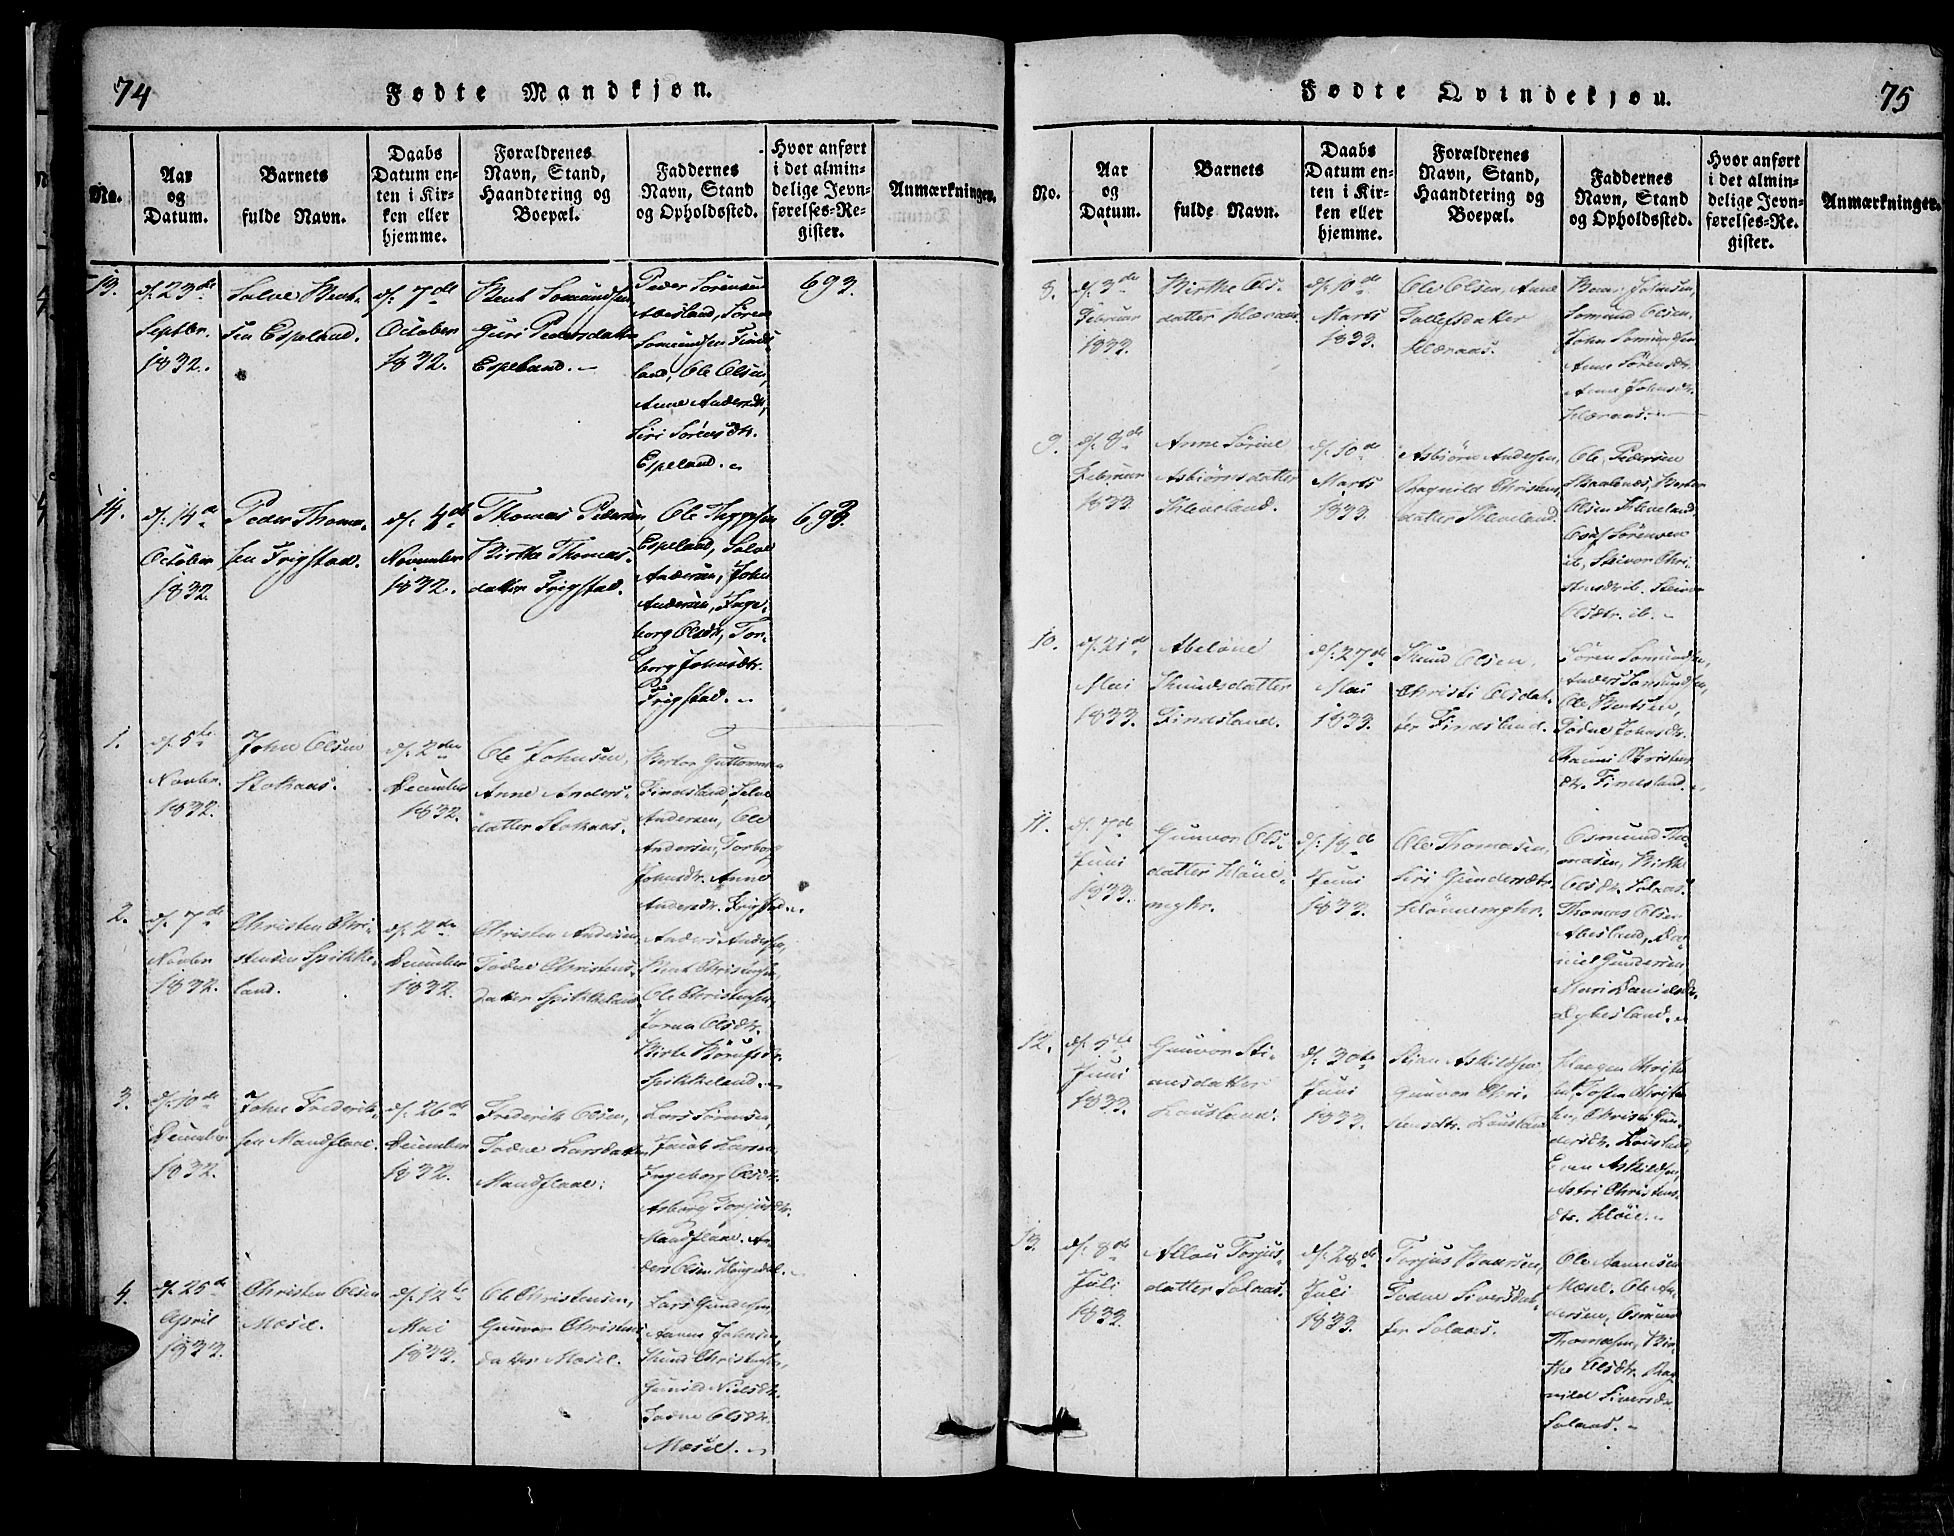 74
Fødte Mandkjøn.
No.
Aar
og
Datum.
Barnets
fulde Navn.
Daabs
Datum en-
ten i Kir-
ken eller
hjemme.
Forældrenes
Navn, Stand,
Haandtering og
Boepæl.
Faddernes
Navn, Stand
og Opholdssted.
Hvor anført
i det almin-
delige Jevn-
førelses-Re-
gister.
Anmærkninger.
13.
d. 23de
Septbr.
1832.
Salve Bent-
sen Espeland.
d. 7de
October
1832.
Bent Somundsen
Guri Pedersdatter
Espeland.
Peder Sørensen
Abesland, Søren
Somundsen Finds-
land, Ole Olsen,
Anne Andersdtr,
Siri Sørensdtr.
Espeland.
693.
14.
d. 14de
October
1832.
Peder Thoma-
sen Frigstad.
d. 4de
November
1832.
Thomas Pedersen
Birthe Thomas-
datter Frigstad.
Ole Jeppsen
Espeland, Salve
Andersen, John
Andersen, Inge-
borg Olsdtr, Tor-
borg Johnsdtr.
Frigstad.
693.
1.
d. 5te
Novbr.
1832.
John Olsen
Stokaas.
d. 2den
December
1832.
Ole Johnsen,
Anne Anders-
datter Stokaas.
Bertor Guttormsen
Findsland, Salve
Andersen, Ole
Andersen, Torborg
Johnsdtr. Anne
Andersdtr. Frigstad.
2.
d. 7de
Novbr
1832.
Christen Chri-
stensen Spikke-
land.
d. 2den
December
1832.
Christen Andersen,
Todne Christens-
datter Spikkeland
Anders Andersen,
Bent Christensen,
Ole Christensen
Olsdtr.
Birte
Spikkeland.
3.
d. 10de
December
1832.
John Frederik-
sen Mandflaae.
d. 26de
December
1832.
Frederik Olsen,
Todne Larsdatter
Mandflaae.
Lars Sørensen,
Jacob Larsen
Ingeborg Olsdtr.
Asborg Torjusdtr.
Mandflaae. An-
ders Olsen
4.
d. 25de
April
1833.
Christen Olsen
Mæsel.
d. 12te
Mai
1833.
Ole Christensen,
Gunvor Christens-
datter Mæsel.
Lars Gundersen
Aanen Johnsen,
Knud Christensen,
Gunild Nielsdtr.
Todne Olsdtr.
Mæsel.
75
Fødte Qvindekjøn.
No.
Aar
og
Datum.
Barnets
fulde Navn.
Daabs
Datum en-
ten i Kir-
ken eller
hjemme.
Forældrenes
Navn, Stand,
Haandtering og
Boepæl.
Faddernes
Navn, Stand
og Opholdssted.
Hvor anført
i det almin-
delige Jevn-
førelses-Re-
gister.
Anmærkninger.
8.
d. 3de
Februar
1833.
Birthe Ols-
datter Klæraas.
d. 10de
Marts
1833.
Ole Olsen, Anne
Tollefsdatter
Klæraas.
Johnsen,
Somund Olsen,
John Somundsen
Anne Sørensdtr.
Anne Johnsdtr.
Klæraas.
9.
d. 8de
Februar
1833.
Anne Sørine
Asbiørnsdatter
Kleveland.
d. 10de
Marts
1833.
Asbiørn Andersen,
Ragnild Christens-
datter Kleveland.
Ole Pedersen
Berter
Olsen Kleveland
Sørensen
ib. Steivor Chri-
stensdtr ib.
Olsdtr. ib.
10.
d. 21de
Mai
1833.
Abelone
Knudsdatter
Findsland.
d. 27de
Mai
1833.
Knud Olsen,
Christi Olsdat-
ter Findsland.
Søren Somundsen,
Anders Somundsen,
Ole Bentsen,
Todne Johnsdtr.
Christens-
dtr. Findsland.
11.
d. 7de
Juni
1833.
Gunvor Ols-
datter
d. 18de
Juni
1833.
Ole Thomasen,
Siri Gundersdtr.
Osmund Tho-
masen, Birthe
Olsdtr. Solaas.
Thomas Olsen
Abesland, Da-
niel Gundersen
Mari Danielsdtr
Dybesland.
12.
d. 5te
Juni
1833.
Gunvor Sti-
ansdatter
Lousland.
d. 30te
Juni
1833.
Stian Askildsen
Gunvor Chri-
stensdtr. Lousland
Haagen Christen-
sen, Tosten Christen-
sen, Christi Gun-
dersdtr. Lousland,
Even Askildsen,
Astri Christens-
dtr. Kløie.
13.
d. 8de
Juli
1833.
Torjus-
datter Solaas.
d. 28de
Juli
1833.
Torjus Baarsen,
Todne Siversdat-
ter Solaas.
Ole Aanensen
Mæsel. Ole An-
dersen, Osmund
Thomasen, Bir-
the Olsdtr. Rag-
nild Siversdtr
Solaas.